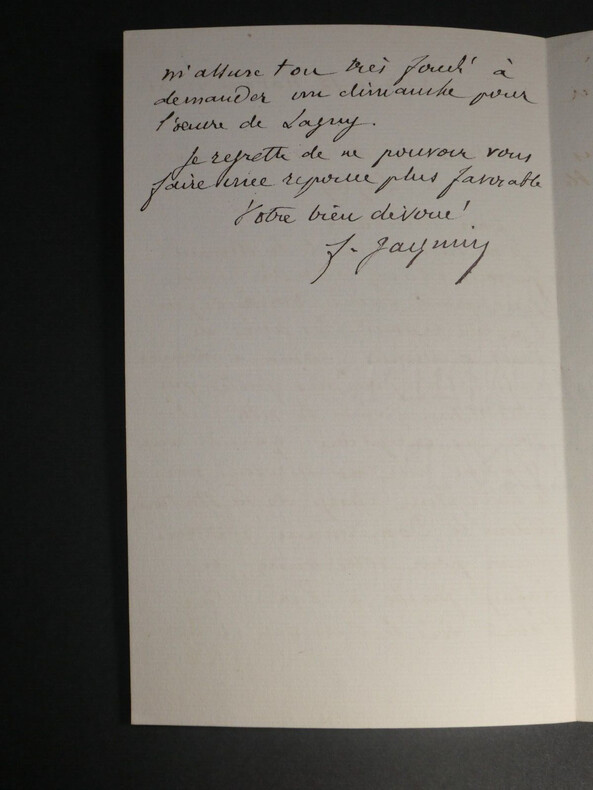 m'assure t on très fondé à
demander un dimanche pour
l'œuvre de Lagny.
Je regrette de ne pouvoir vous
faire une reponse plus favorable
Votre bien dévoué